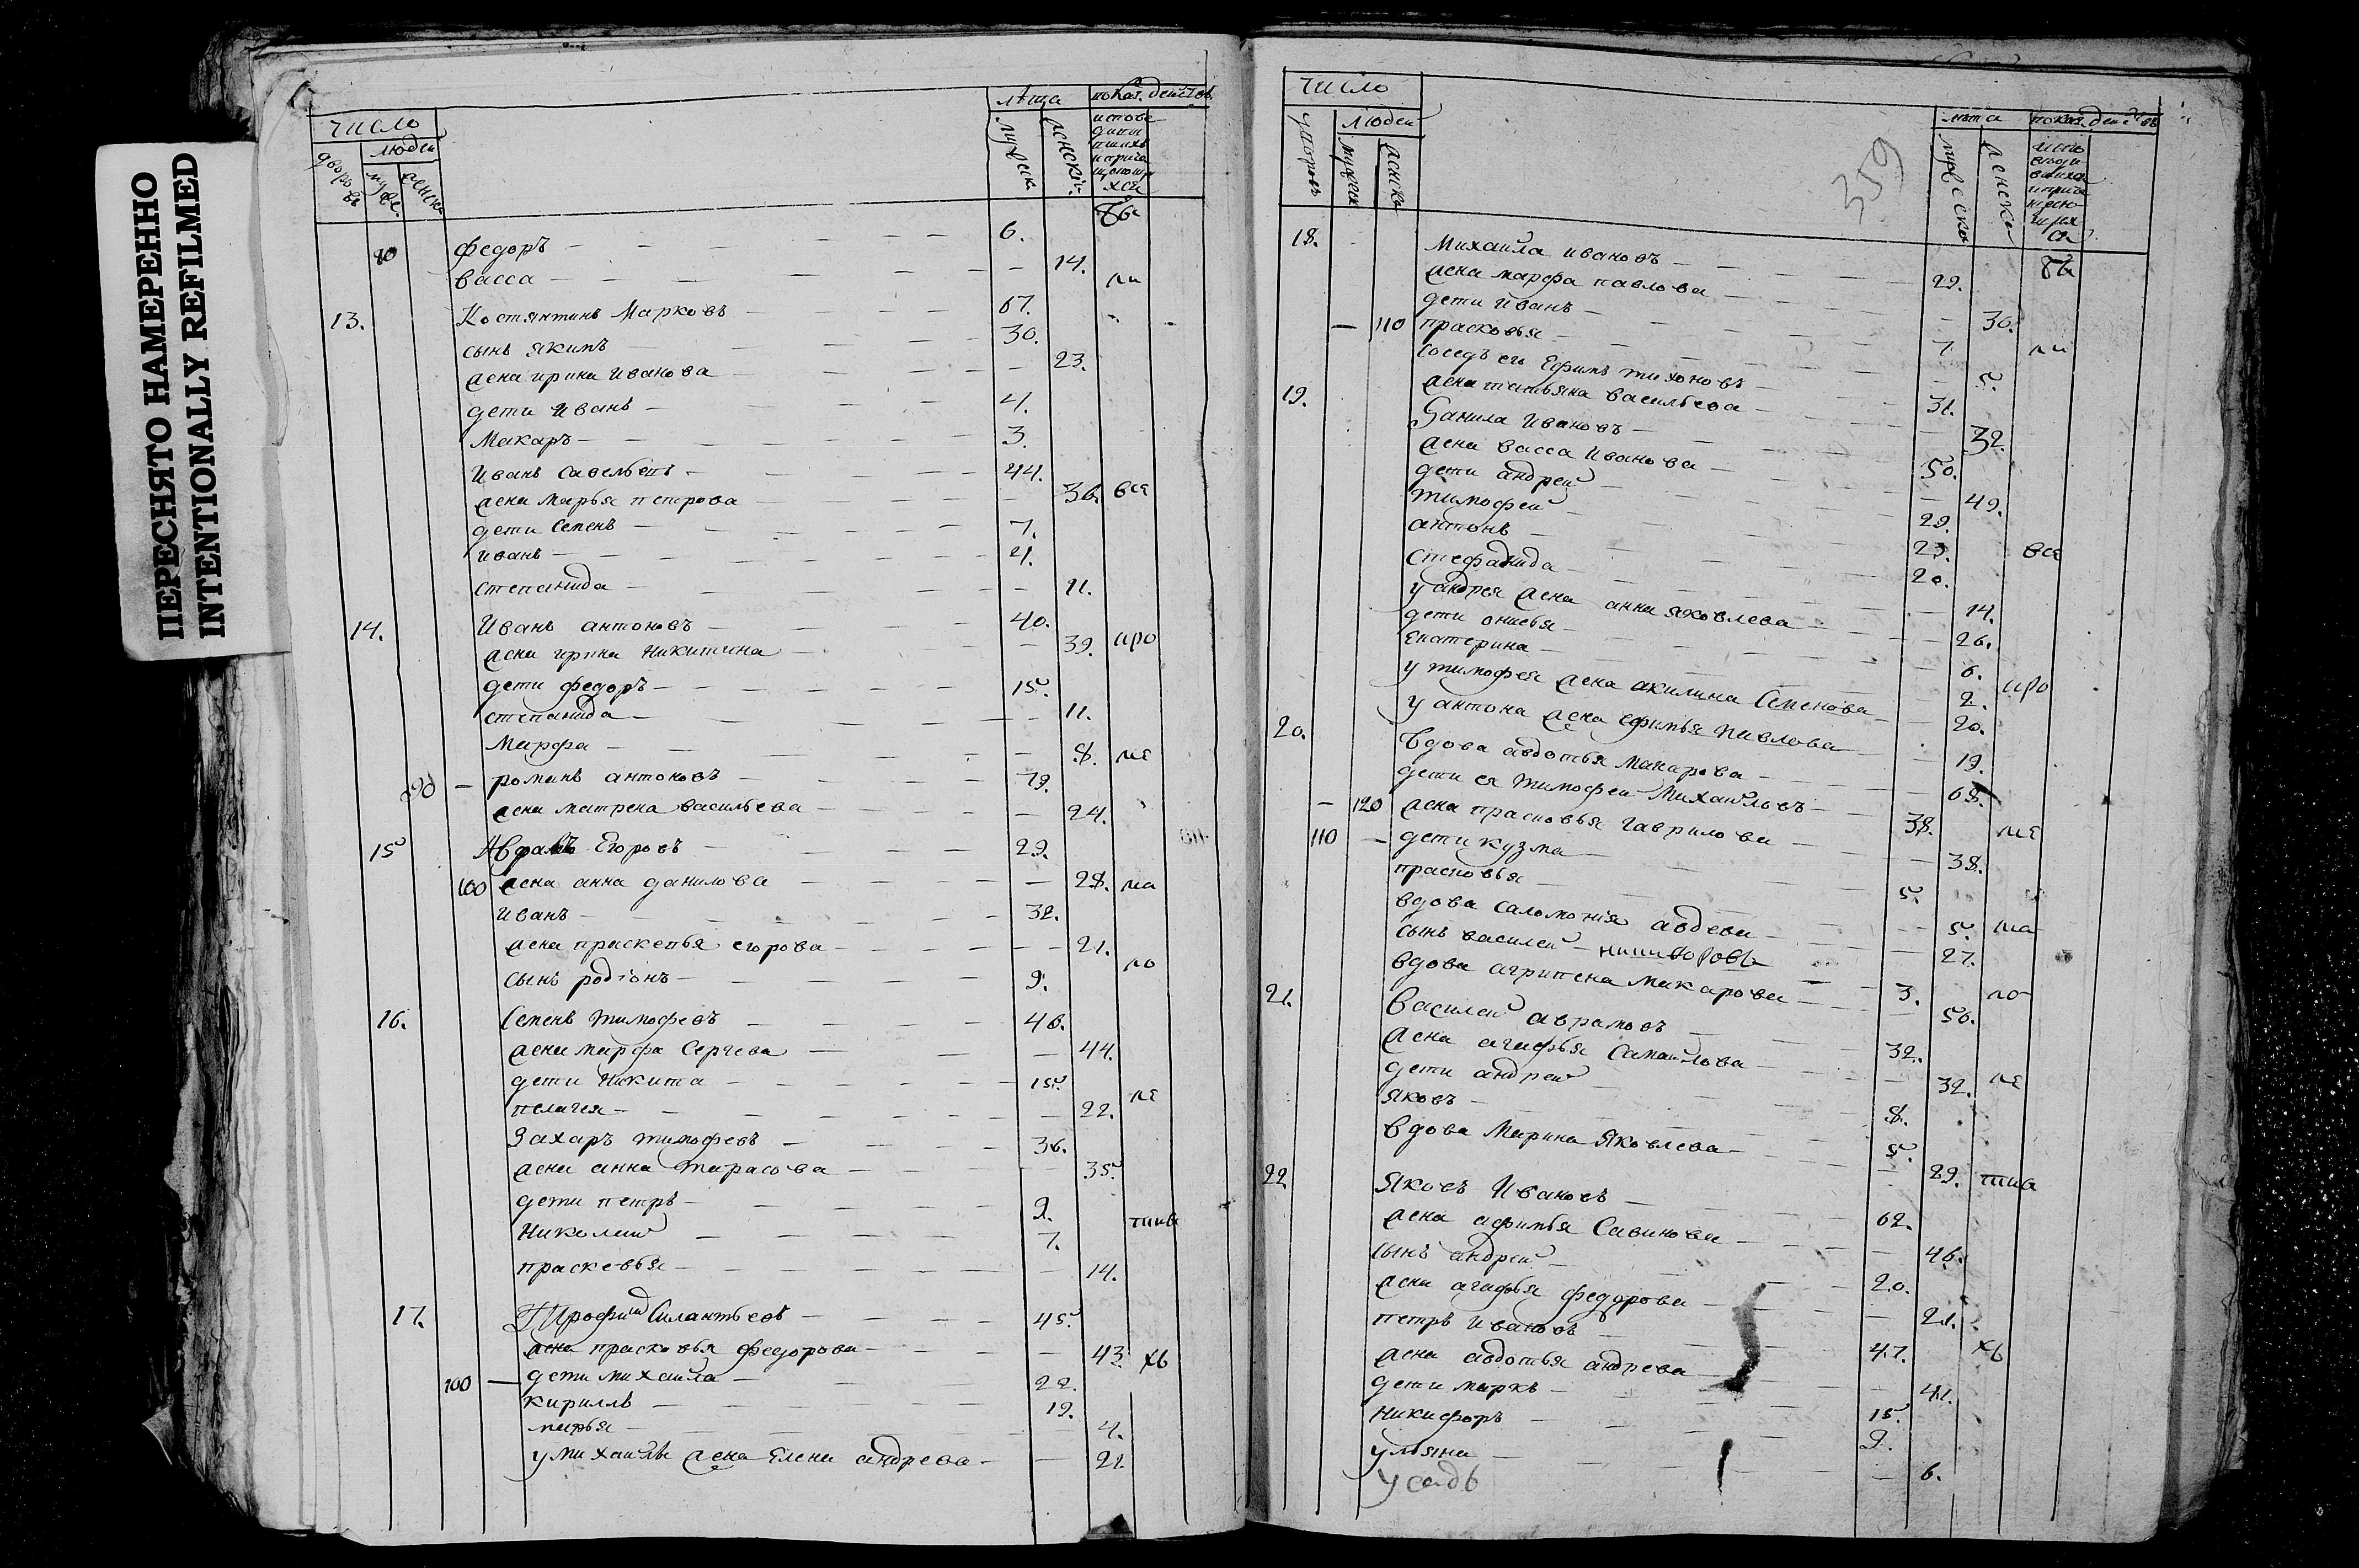 ПЕРЕСНЯТО НАМЕРЕННО
INTENTIONALLY REFILMED
число
людеи
лѣта
показ. деиств.
дворовъ
мужес.
женска
мужеск.
женскг.
90 федоръ 6.
васса 14.
13. Костянтинъ Марковъ 67.
сынъ якимъ 30.
жена ирина иванова 23.
дети иванъ 4.
Макаръ 3.
Иванъ савельевъ 44.
жена марья петрова 36. вся
дети Семенъ 7.
иванъ 4.
степанида 11.
14. Иванъ антоновъ 40.
жена ирина Никитина 39. иро
дети федоръ 15.
степанида 11.
Марфа 8.
90 романъ антоновъ 19.
жена матрена васильева 24.
15 Егоровъ 29.
100 жена анна данилова 28. ма
иванъ 32.
жена праскевья егорова 21.
сынъ родіонъ 9. ло
16. Семенъ тимофевъ 46.
жена марфа Сергева 44.
дети Никита 15.
пелагея 22.
Захаръ тимофевъ 36.
жена анна тарасова 35.
дети петръ 9.
Николаи 7.
праскевья 14.
17. Силантьевъ 45.
жена прасковья федорова 43. хъ
100 дети михаила 22.
кирилъ 19.
марья 4.
у михаилы жена Елена андрева 21
359
число
людеи
лѣта
показ. деиствъ
мужеск
женска
мужеско
женско
18. Михаила ивановъ 29.
жена марфа павлова 30.
дети иванъ 7.
110 прасковья
соседъ его Ефимъ тихоновъ 31.
жена татьяна васильева 32.
19. Данила Ивановъ 50.
жена васса Иванова 49.
дети андреи 29.
тимофеи 23.
антонъ 20.
стефанида 14.
у андрея жена анна яковлева 26.
дети 6.
Екатерина 2.
у тимофея жена акилина Семенова 20.
у антона жена ефимья павлова 19.
20. Вдова авдотья Макарова 68.
дети ея Тимофеи Михаиловъ 38.
120 жена прасковья гаврилова 38.
110 дети кузма 5.
прасковья 5.
вдова саломонія авдева 27.
сынъ василеи 3.
вдова агрипена макарова 56.
21. Василеи аврамовъ 32.
жена агафья Самаилова 32.
дети андреи 8.
яковъ 5.
вдова Марина Яковлева 89.
22 Яковъ Ивановъ 62.
жена афимья Савинова 46.
сынъ андреи 20.
жена агафья федорова 21.
петръ ивановъ 47.
жена авдотья андрева 41.
дети маркъ 15.
Никифоръ 9.
ульяна 6.